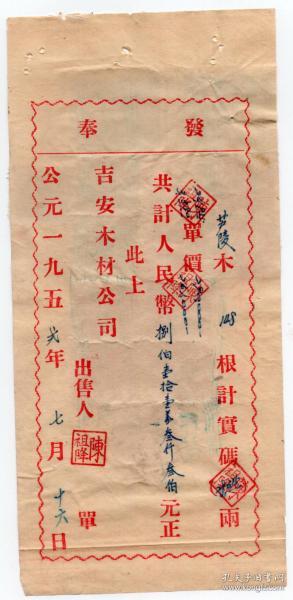 奉 發
木 148 根計實碼 兩
單價
共計人民幣捌佰壹拾壹萬叁仟叁佰元正
此上
吉安木材公司
出售人 陳祖暉 單
公元一九五弍年七月十六日
孔夫子旧书网